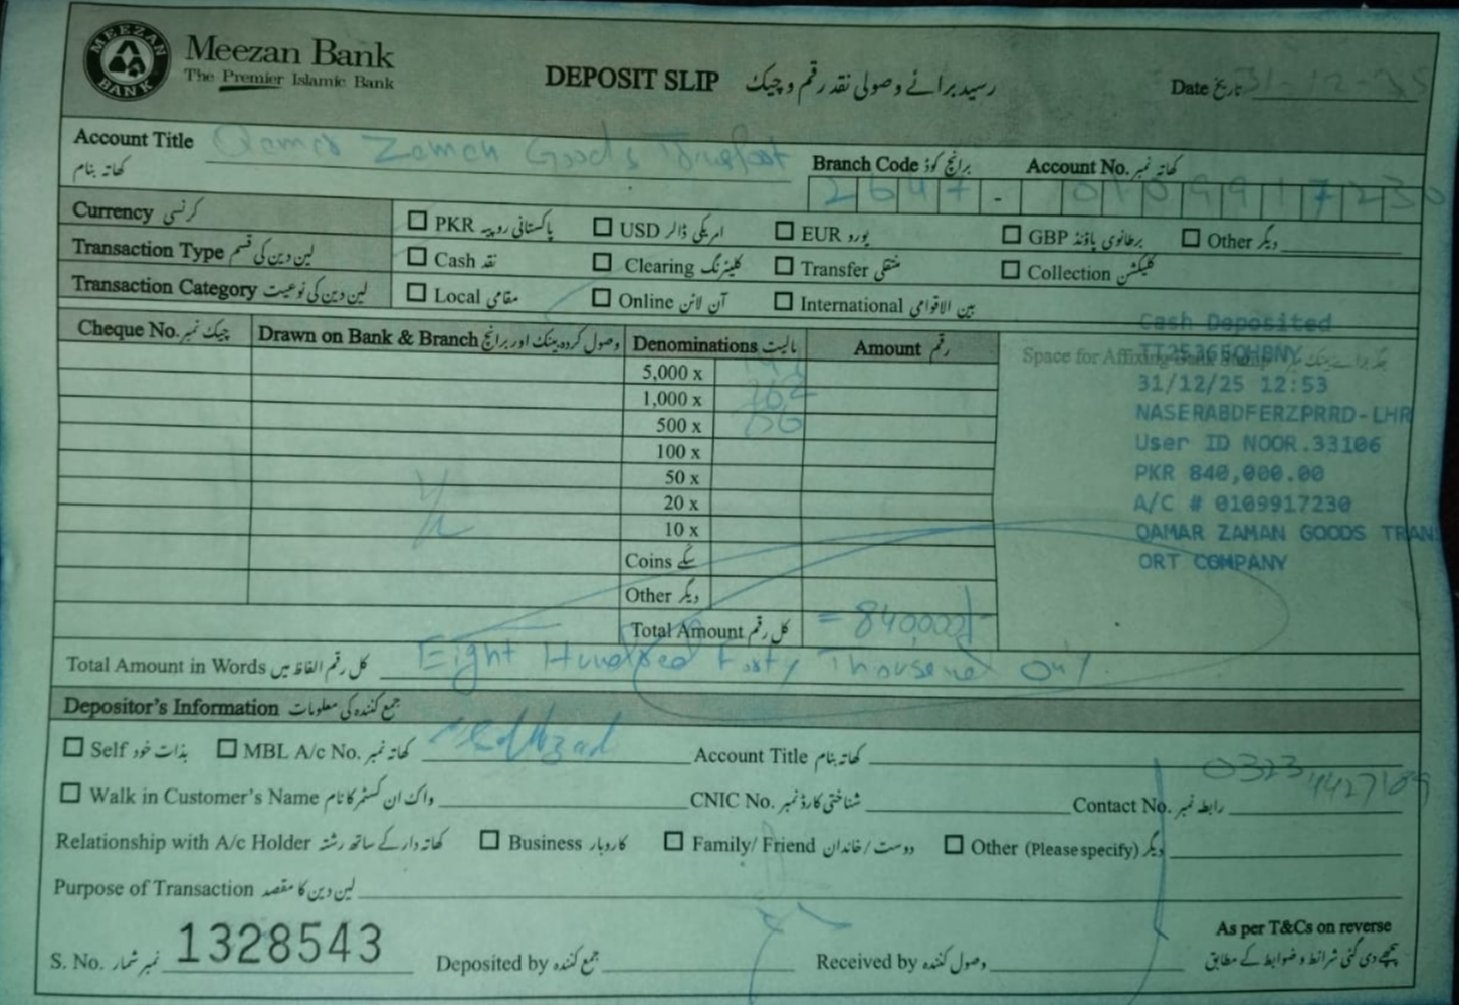 MEEZAN BANK
Meezan Bank
The Premier Islamic Bank
DEPOSIT SLIP رسید برائے وصولی نقد رقم و چیک
Date تاریخ 31-12-25
Account Title Qamar Zaman Goods
کھاتہ بنام
Branch Code برانچ کوڈ Account No. کھاتہ نمبر
2647 - 0109917230
Currency کرنسی PKR پاکستانی روپیہ USD امریکی ڈالر EUR یورو GBP برطانوی پاؤنڈ Other دیگر
Transaction Type لین دین کی قسم Cash نقد Clearing کلیئرنگ Transfer منتقلی Collection کلیکشن
Transaction Category لین دین کی نوعیت Local مقامی Online آن لائن International بین الاقوامی
Cheque No. چیک نمبر Drawn on Bank & Branch وصول کردہ بینک اور برانچ Denominations مالیت Amount رقم
Space for Affixing Bank
Cash Deposited
31/12/25 12:53
NASERABDFERZPRRD-LHR
User ID NOOR.33106
PKR 840,000.00
A/C # 0109917230
QAMAR ZAMAN GOODS TRAN
ORT COMPANY
5,000 x
1,000 x
500 x
100 x
50 x
20 x
10 x
Coins سکے
Other دیگر
Total Amount کل رقم = 840,000/
Total Amount in Words کل رقم الفاظ میں Eight Hundred Forty Thousand Only
Depositor's Information جمع کنندہ کی معلومات
Self بذات خود MBL A/c No. کھاتہ نمبر Account Title کھاتہ بنام
Walk in Customer's Name واک ان کسٹمر کا نام CNIC No. شناختی کارڈ نمبر Contact No. رابطہ نمبر 0323
Relationship with A/c Holder کھاتہ دار کے ساتھ رشتہ Business کاروبار Family/ Friend دوست / خاندان Other (Please specify) دیگر
Purpose of Transaction لین دین کا مقصد
S. No. نمبر شمار 1328543 Deposited by جمع کنندہ Received by وصول کنندہ
As per T&Cs on reverse
پیچھے دی گئی شرائط و ضوابط کے مطابق